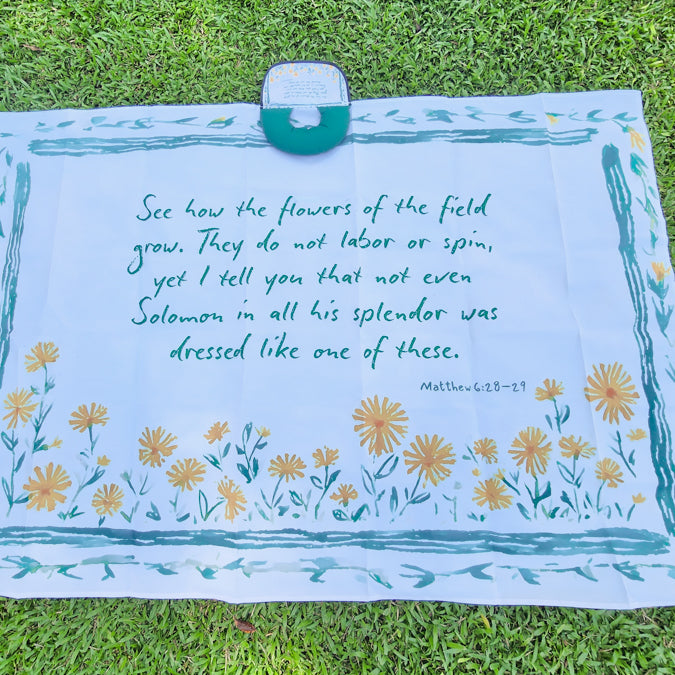 See how the flowers of the field
grow. They do not labor or spin,
yet I tell you that not even
Solomon in all his splendor was
dressed like one of these.
Matthew 6:28-29